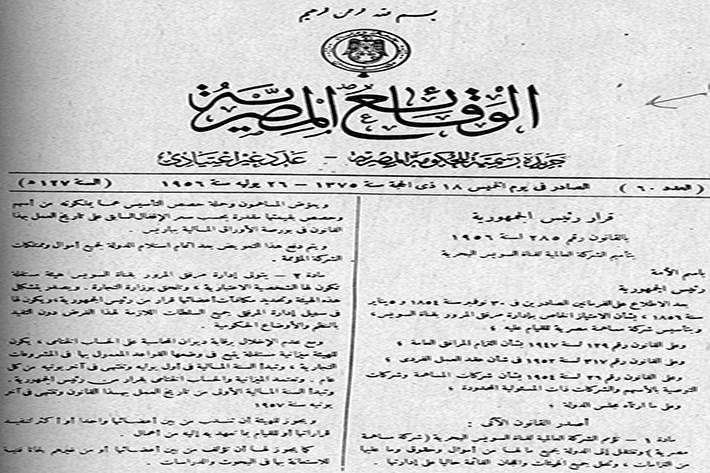 بسم الله الرحمن الرحيم
الوقائع المصرية
جريدة رسمية للحكومة المصرية - عدد غير اعتيادى
( العدد ٦٠ ) الصادر فى يوم الخميس ١٨ ذى الحجة سنة ١٣٧٥ – ٢٦ يوليه سنة ١٩٥٦ ( السنة ١٢٧ه )
قرار رئيس الجمهورية
بالقانون رقم ٢٨٥ لسنة ١٩٥٦
بتأميم الشركة العالمية لقناة السويس البحرية
باسم الأمة
رئيس الجمهورية
بعد الاطلاع على الفرمانين الصادرين فى ٣٠ نوفمبر سنة ١٨٥٤ و ٥ يناير
سنة ١٨٥٦ بشأن الامتياز الخاص بإدارة مرفق المرور بقناة السويس ،
وبتأسيس شركة مساهمة مصرية للقيام عليه ؛
وعلى القانون رقم ١٢٩ لسنة ١٩٤٧ بشأن التزام المرافق العامة ؛
وعلى القانون رقم ٣١٧ لسنة ١٩٥٢ فى شأن عقد العمل الفردى ؛
وعلى القانون رقم ٢٦ لسنة ١٩٥٤ بشأن شركات المساهمة وشركات
التوصية بالأسهم والشركات ذات المسئولية المحدودة ؛
وعلى ما ارتآه مجلس الدولة ؛
أصدر القانون الآتى :
مادة ١ – تؤمم الشركة العالمية لقناة السويس البحرية ( شركة مساهمة
مصرية ) وينتقل إلى الدولة جميع ما لها من أموال وحقوق وما عليها
من التزامات وتحل جميع الهيئات واللجان القائمة حاليا على إدارتها .
ويعوض المساهمون وحملة حصص التأسيس عما يملكونه من أسهم
وحصص بقيمتها مقدرة بحسب سعر الإقفال السابق على تاريخ العمل بهذا
القانون فى بورصة الأوراق المالية بباريس .
ويتم دفع هذا التعويض بعد إتمام استلام الدولة لجميع أموال وممتلكات
الشركة المؤممة .
مادة ٢ – يتولى إدارة مرفق المرور بقناة السويس هيئة مستقلة
تكون لها الشخصية الاعتبارية ، وتلحق بوزارة التجارة . ويصدر بتشكيل
هذه الهيئة وتحديد مكافآت أعضائها قرار من رئيس الجمهورية ، ويكون لها
فى سبيل إدارة المرفق جميع السلطات اللازمة لهذا الغرض دون التقيد
بالنظم والأوضاع الحكومية .
ومع عدم الإخلال برقابة ديوان المحاسبة على الحساب الختامى ، يكون
للهيئة ميزانية مستقلة يتبع فى وضعها القواعد المعمول بها فى المشروعات
التجارية ، وتبدأ السنة المالية فى أول يوليه وتنتهى فى آخر يونيه من كل
عام . وتعتمد الميزانية والحساب الختامى بقرار من رئيس الجمهورية .
وتبدأ السنة المالية الأولى من تاريخ العمل بهذا القانون وتنتهى فى آخر
يونيه سنة ١٩٥٧
ويجوز للهيئة أن تندب من بين أعضائها واحدا أو أكثر لتنفيذ
قراراتها أو للقيام بما تعهد به إليه من أعمال .
كما يجوز لها أن تؤلف من بين أعضائها أو من غيرهم لجانا فنية
للاستعانة بها فى البحوث والدراسات .